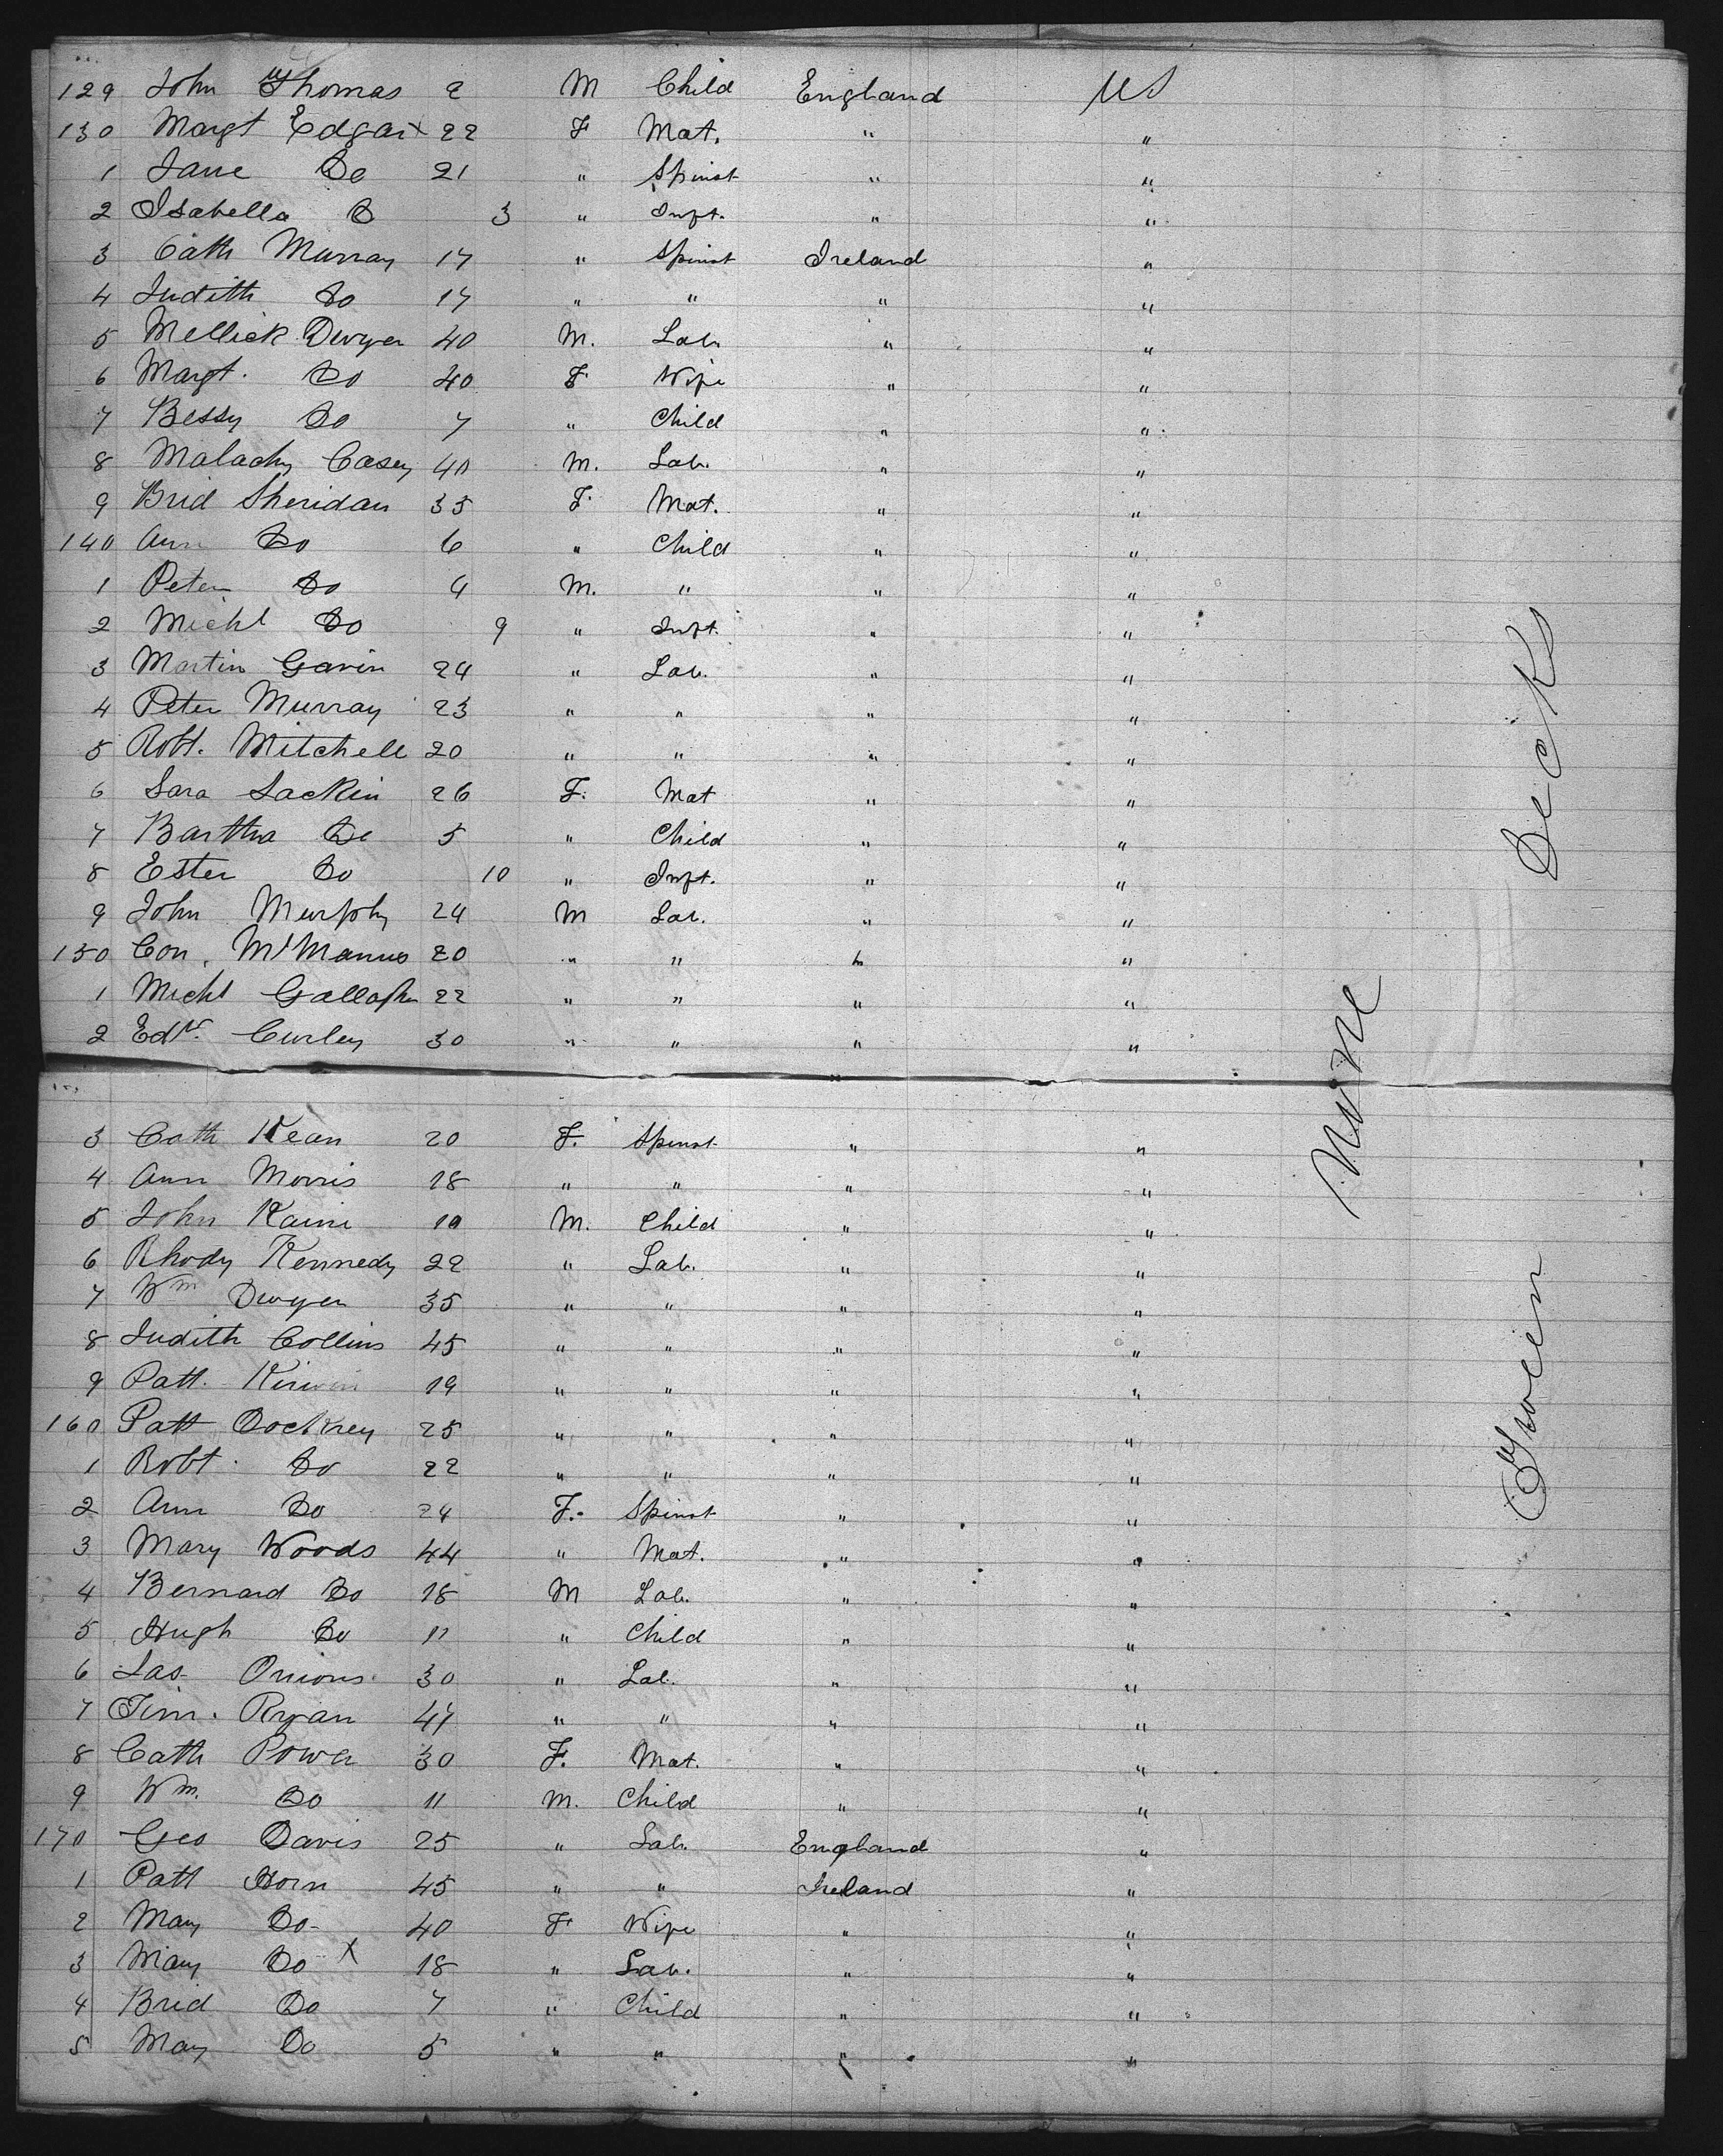 129 John Thomas 2 M Child England US
130 Margt Edgar x 22 F Mat. " "
1 Jane Do 21 " Spinst " "
2 Isabella Do 3 " Inft. " "
3 Cath Murray 17 " Spinst Ireland "
4 Judith Do 17 " " " "
5 Mellick Dwyer 40 M. Lab. " "
6 Margt. Do 40 F Wife " "
7 Bessy Do 7 " Child " "
8 Malachy Casey 40 M. Lab. " "
9 Brid Sheridan 35 F Mat. " "
140 Ann Do 6 " Child " "
1 Peter Do 4 M. " " "
2 Michl Do 9 " Inft. " "
3 Martin Gavin 24 " Lab. " "
4 Peter Murray 23 " " " "
5 Robt. Mitchell 20 " " " "
6 Sara Lackin 26 F. Mat " "
7 Bartha Do 5 " Child " "
8 Ester Do 10 " Inft. " "
9 John Murphy 24 M Lab. " "
150 Con. McManus 20 " " " "
1 Michl Gallagher 22 " " " "
2 Edw. Curley 30 " " " "
3 Cath Kean 20 F. Spinst " "
4 Ann Morris 18 " " " "
5 John Kaine 10 M. Child " "
6 Rhody Kennedy 22 " Lab. " "
7 Wm Dwyer 35 " " " "
8 Judith Collins 45 " " " "
9 Patt. Kirwin 19 " " " "
160 Patt Dockrey 25 " " " "
1 Robt. Do 22 " " " "
2 Ann Do 24 F. Spinst " "
3 Mary Woods 44 " Mat. " "
4 Bernard Do 18 M Lab. " "
5 Hugh Do 11 " Child " "
6 Jas. Onions 30 " Lab. " "
7 Tim. Ryan 47 " " " "
8 Cath Power 30 F. Mat. " "
9 Wm. Do 11 M. Child " "
170 Geo Davis 25 " Lab. England "
1 Patt Horn 45 " " Ireland "
2 Mary Do 40 F Wife " "
3 Mary Do x 18 " Lab. " "
4 Brid Do 7 " Child " "
5 May Do 5 " " " "
None
Decks